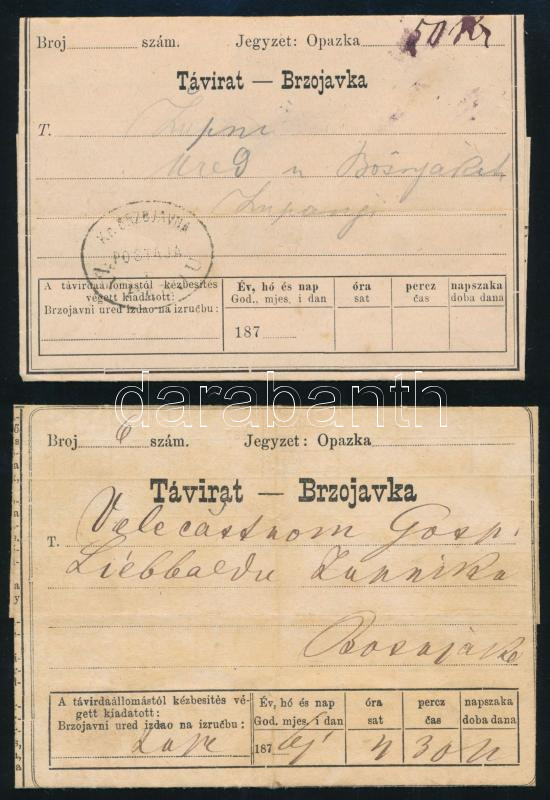 Broj szám. Jegyzet: Opazka 50 Kr
Távirat — Brzojavka
T. Župni
Ured u Bošnjakih
Županja
KR. BRZOJAVNA
POSTAJA
A távirdaállomástól kézbesités
végett kiadatott:
Brzojavni ured izdao na izručbu:
Év, hó és nap
God., mjes. i dan
óra
sat
percz
čas
napszaka
doba dana
187
darabanth
Broj 6 szám. Jegyzet: Opazka
Távirat — Brzojavka
T. Velečastnom Gosp.
Liebbaldu Župniku
Bošnjake
A távirdaállomástól kézbesités vé-
gett kiadatott:
Brzojavni ured izdao na izručbu:
Év, hó és nap
God. mjes. i dan
óra
sat
percz
čas
napszaka
doba dana
187 4 30